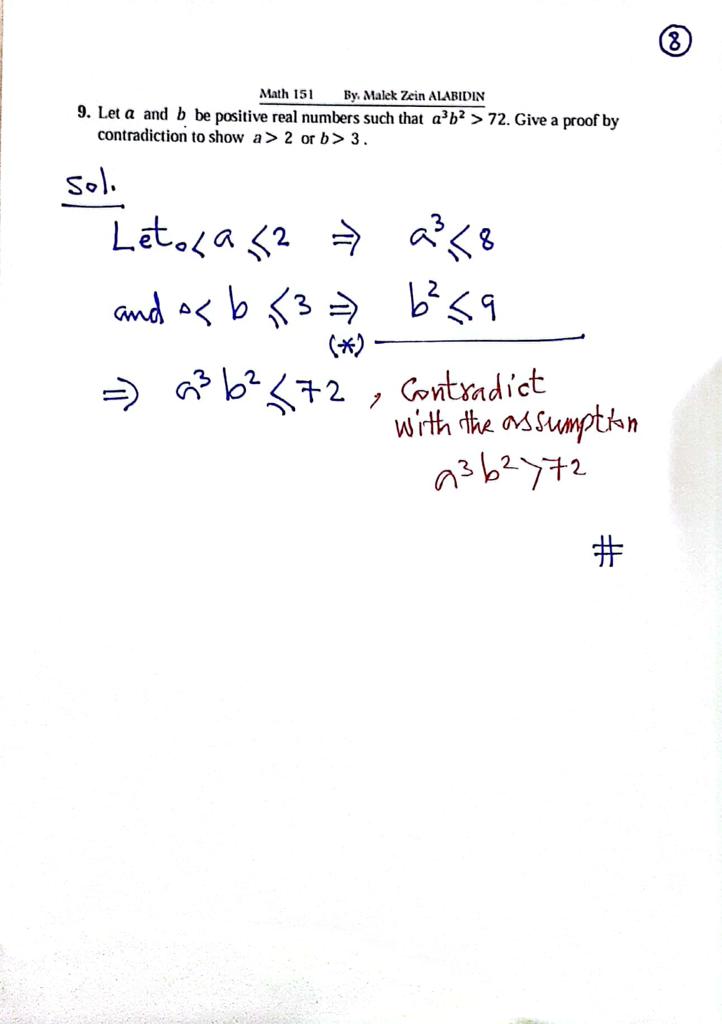 ⑧
Math 151 By. Malek Zein ALABIDIN
9. Let a and b be positive real numbers such that a³b² > 72. Give a proof by
contradiction to show a > 2 or b > 3.
Sol.
Let 0< a ⩽2 ⇒ a³⩽8
and 0< b ⩽3 ⇒ b²⩽9
(*)
⇒ a³b²⩽72 , Contradict
with the assumption
a³b²>72
#